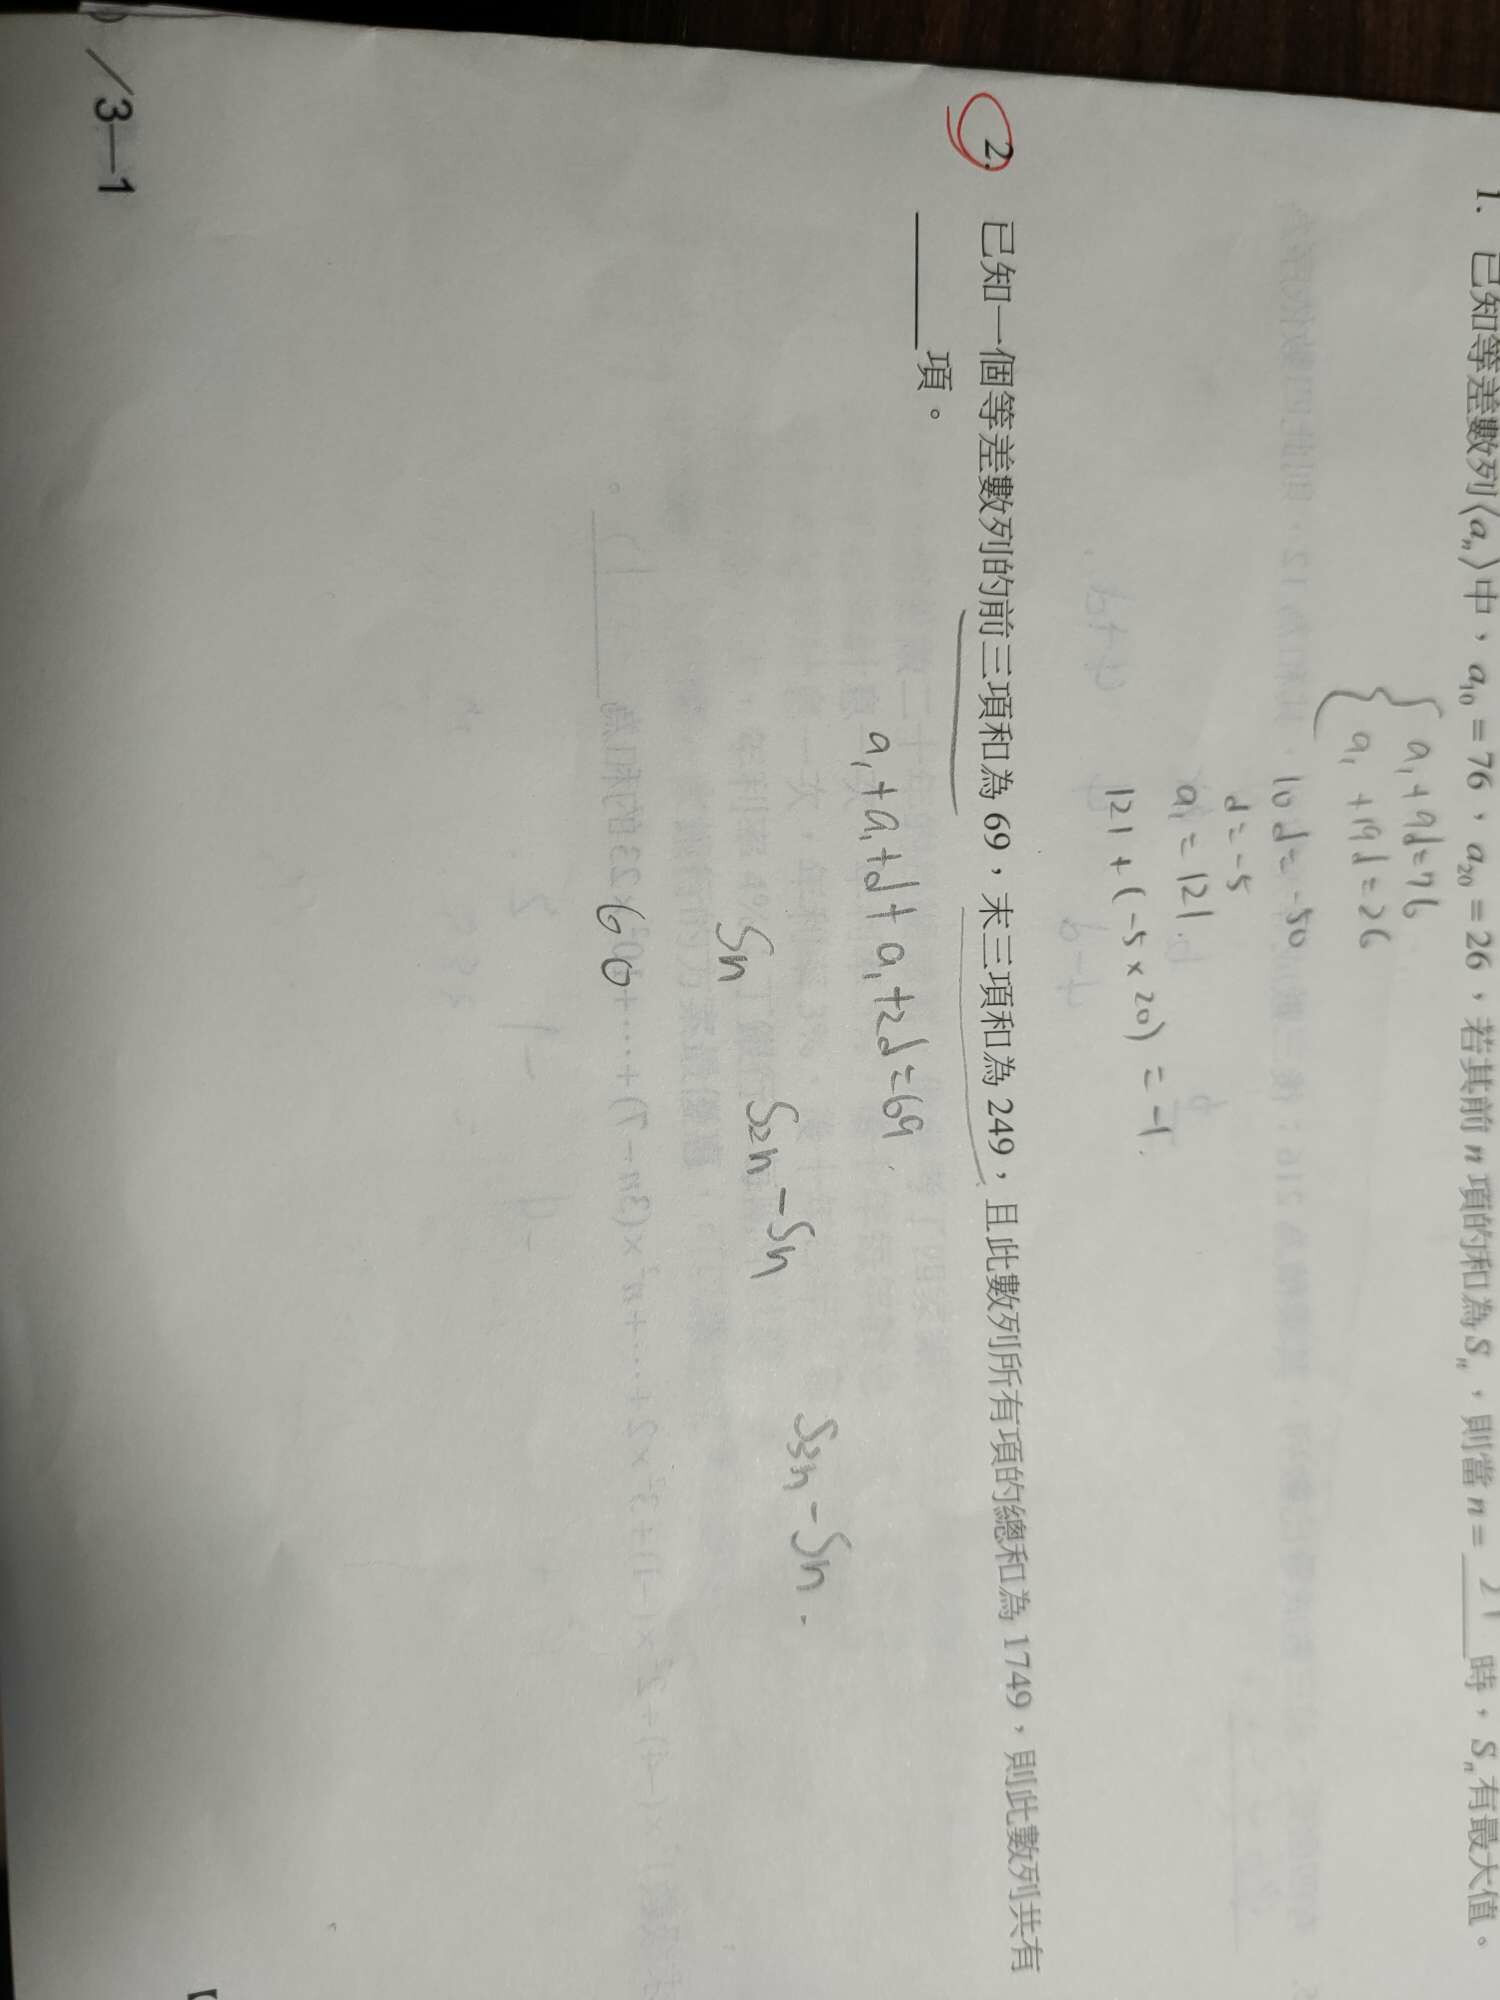 1、已知等差數列⟨aₙ⟩中，a₁₀ = 76，a₂₀ = 26，若其前 n 項的和為 Sₙ，則當 n = 21 時，Sₙ有最大值。
{ a₁+9d=76
a₁+19d=26
10d=-50
d=-5
a₁=121
121+(-5×20)=
2. 已知一個等差數列的前三項和為 69，末三項和為 249，且此數列所有項的總和為 1749，則此數列共有
______項。
a₁+a₁+d+a₁+2d=69
Sn S2n-Sn S3n-Sn
/3—1